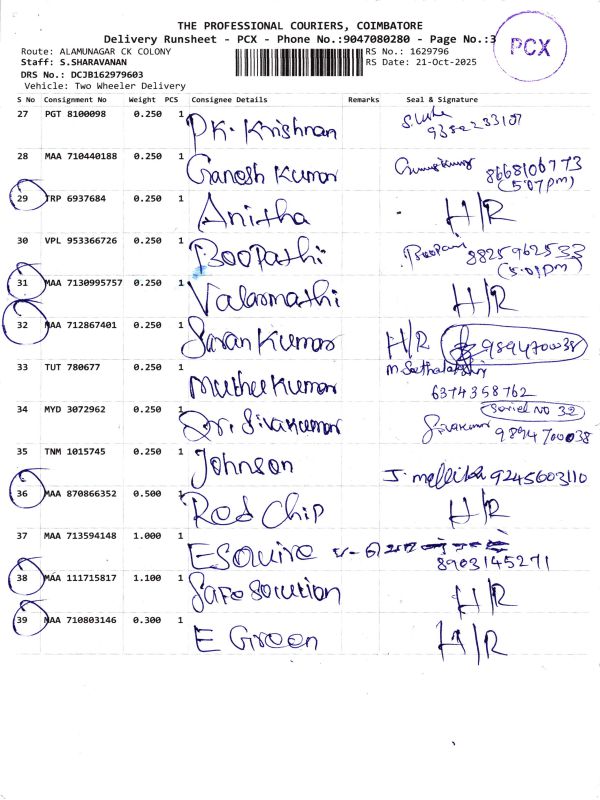 THE PROFESSIONAL COURIERS, COIMBATORE
Delivery Runsheet - PCX - Phone No.:9047080280 - Page No.:3
PCX
Route: ALAMUNAGAR CK COLONY
RS No.: 1629796
Staff: S.SHARAVANAN
RS Date: 21-Oct-2025
DRS No.: DCJB162979603
Vehicle: Two Wheeler Delivery
S No Consignment No Weight PCS Consignee Details Remarks Seal & Signature
27 PGT 8100098 0.250 1 P.K. Krishnan
28 MAA 710440188 0.250 1 Ganesh Kumar 8668106773
(5:07pm)
29 TRP 6937684 0.250 1 Anitha H/R
30 VPL 953366726 0.250 1 Boopathi 8825962533
(5:01pm)
31 MAA 7130995757 0.250 1 Valarmathi H/R
32 MAA 712867401 0.250 1 Saran Kumar H/R 9894700038
33 TUT 780677 0.250 1 Muthu Kumar
6374358762
34 MYD 3072962 0.250 1 Dr. Sivakumar Serial NO 32
Sivakumar 9894700038
35 TNM 1015745 0.250 1 Johnson J. mallika 9245603110
36 MAA 870866352 0.500 1 Red Chip H/R
37 MAA 713594148 1.000 1 Esquire
8903145271
38 MAA 111715817 1.100 1 Safe Solution H/R
39 MAA 710803146 0.300 1 E Green H/R